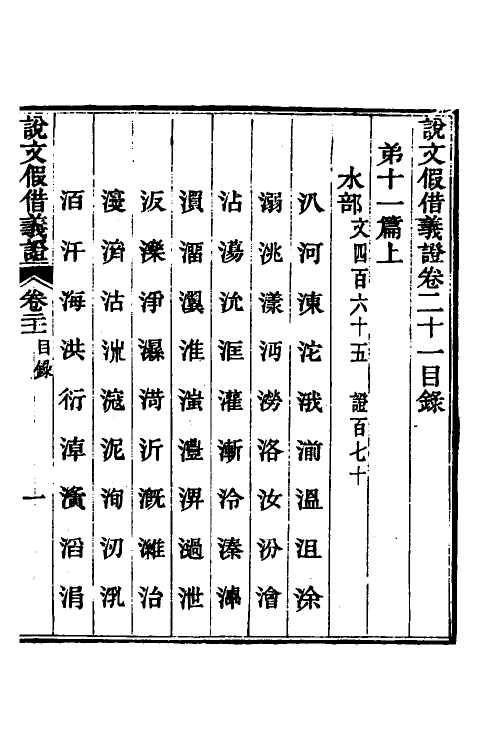 說文假借義證卷二十一目錄
弟十一篇上
水部文四百六十五 證百七十
汃河涷沱涐湔溫沮涂
溺洮漾沔澇洛汝汾澮
沾蕩沇洭灌漸泠溱潭
濆溜瀷淮滍澧淠過泄
汳濼淨濕菏沂溉濰治
濅濟沽沘滱泥洵汈汛
洦汗海洪衍淖濥滔涓
說文假借義證 卷二十一 目錄 一